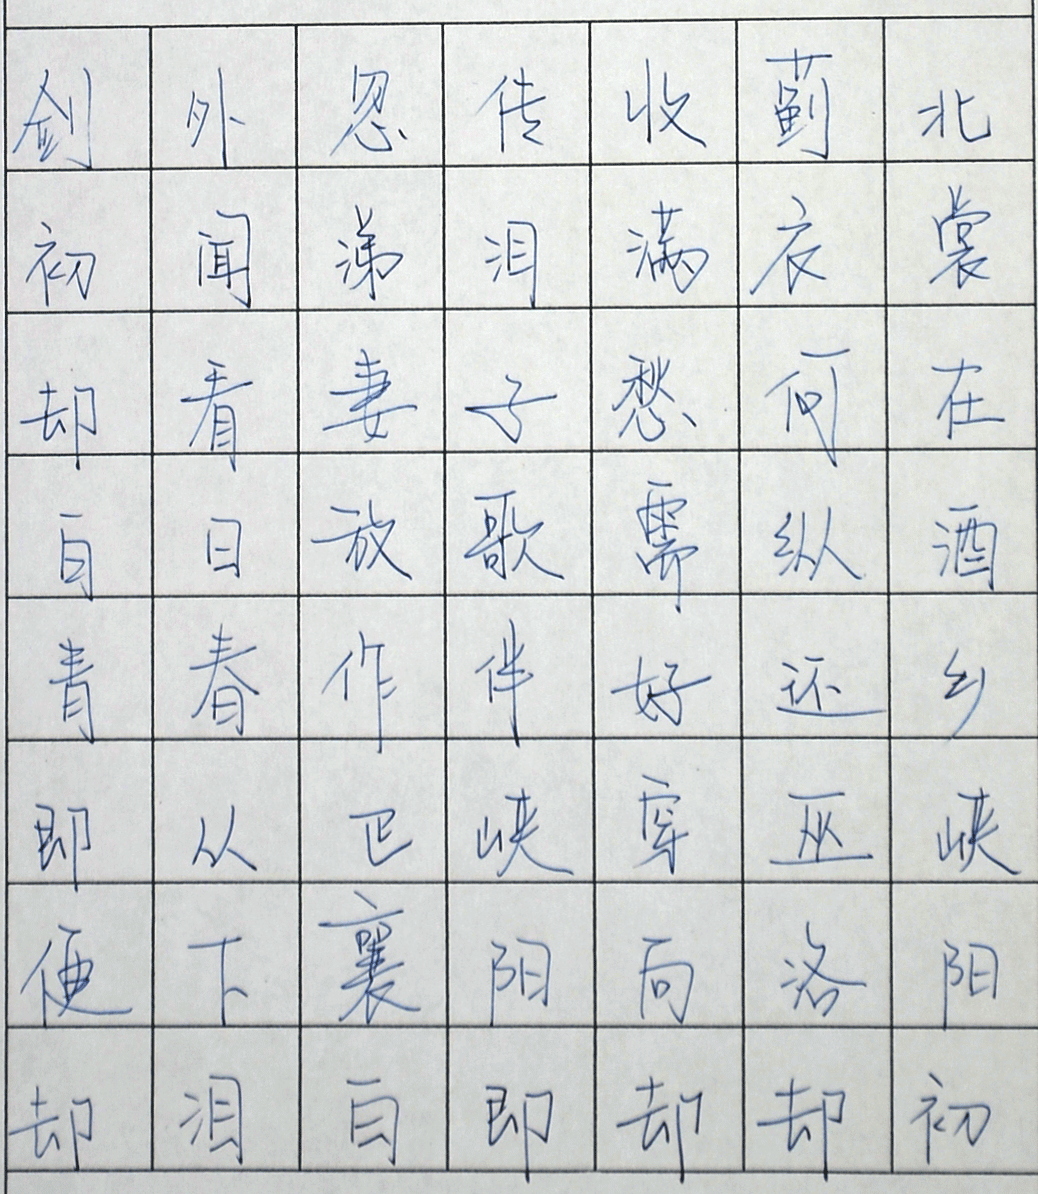 剑外忽传收蓟北
初闻涕泪满衣裳
却看妻子愁何在
白日放歌需纵酒
青春作伴好还乡
即从巴峡穿巫峡
便下襄阳向洛阳
却泪白即却却初